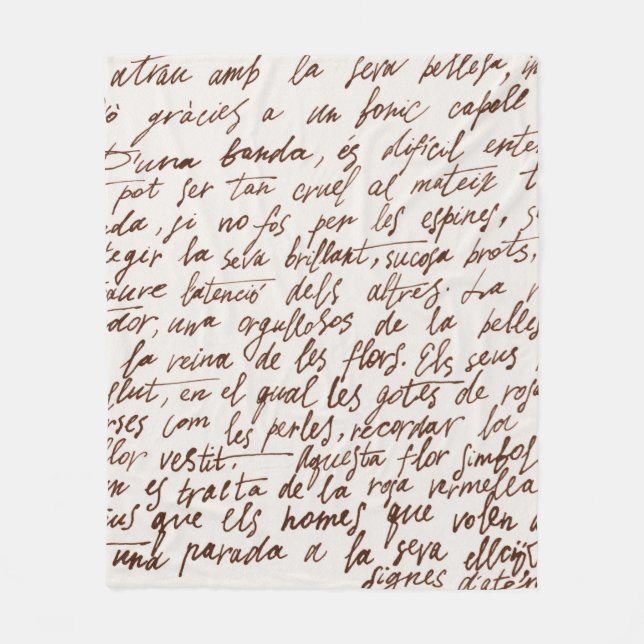 atrau amb la seva bellesa, in
ò gràcies a un fonic capell
D'una banda, és difícil ente
pot ser tan cruel al mateix t
da, si no fos per les espines, s
tegir la seva brillant, sucosa brots,
taure l'atenció dels altres. La r
dor, una orgullosos de la belles
la reina de les flors. Els seus
llut, en el qual les gotes de rosa
rses com les perles, recordar la
flor vestit. Aquesta flor simbol
n es tracta de la rosa vermella
tus que els homes que volen a
una parada a la seva
signes d'aten